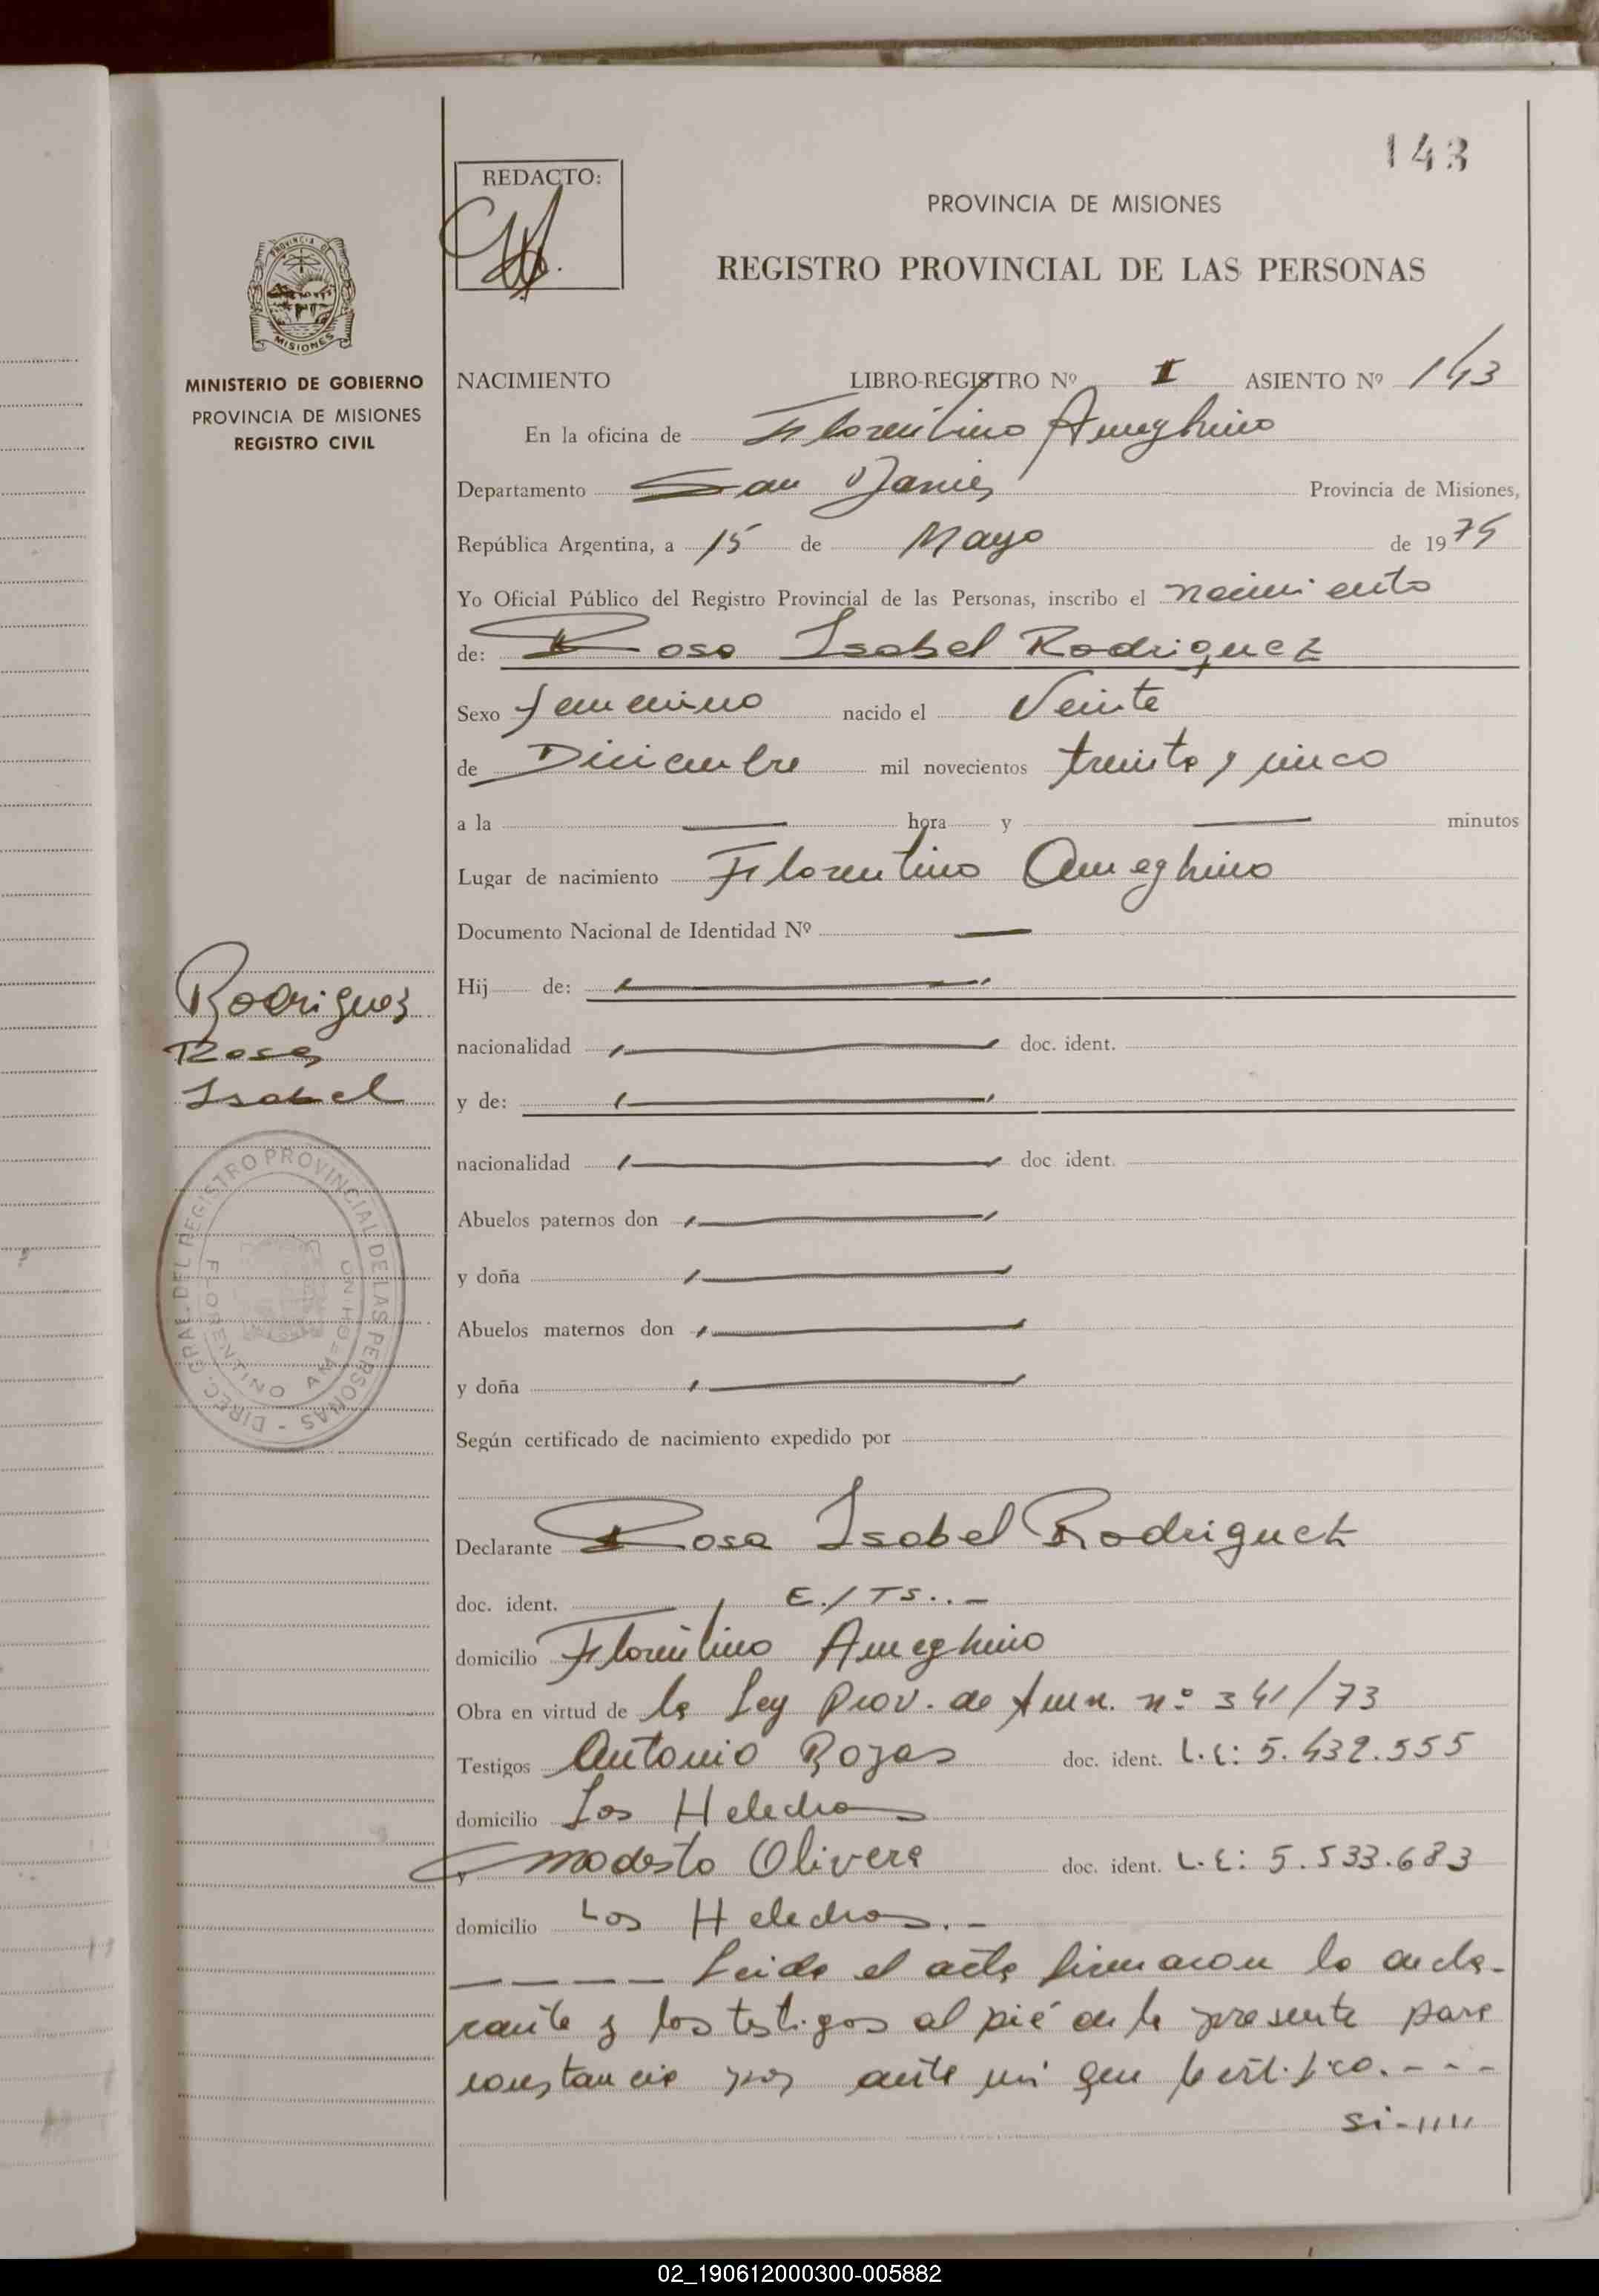 143
REDACTO:
PROVINCIA DE MISIONES
REGISTRO PROVINCIAL DE LAS PERSONAS
PROVINCIA DE
MISIONES
MINISTERIO DE GOBIERNO
PROVINCIA DE MISIONES
REGISTRO CIVIL
NACIMIENTO LIBRO-REGISTRO Nº I ASIENTO Nº 143
En la oficina de Florentino Ameghino
Departamento San Javier Provincia de Misiones,
República Argentina, a 15 de Mayo de 1975
Yo Oficial Público del Registro Provincial de las Personas, inscribo el nacimiento
de: Rosa Isabel Rodriguez
Sexo femenino nacido el Veinte
de Diciembre mil novecientos treinta y cinco
a la — hora y — minutos
Lugar de nacimiento Florentino Ameghino
Documento Nacional de Identidad Nº —
Hij de:
nacionalidad doc. ident.
y de:
nacionalidad doc ident.
Abuelos paternos don
y doña
Abuelos maternos don
y doña
Según certificado de nacimiento expedido por
Declarante Rosa Isabel Rodriguez
doc. ident. E./TS..—
domicilio Florentino Ameghino
Obra en virtud de la Ley Prov. de Amn. nº 341/73
Testigos Antonio Rojas doc. ident. L.E: 5.432.555
domicilio Los Helechos
y Modesto Olivera doc. ident. L.E: 5.533.683
domicilio Los Helechos.—
Leida el acta firmaron la decla-
rante y los testigos al pié de la presente para
constancia por ante mi que certifico.---
si-////
Rodriguez
Rosa
Isabel
DIREC. GRAL. DEL REGISTRO PROVINCIAL DE LAS PERSONAS -
FLORENTINO AMEGHINO
02_190612000300-005882